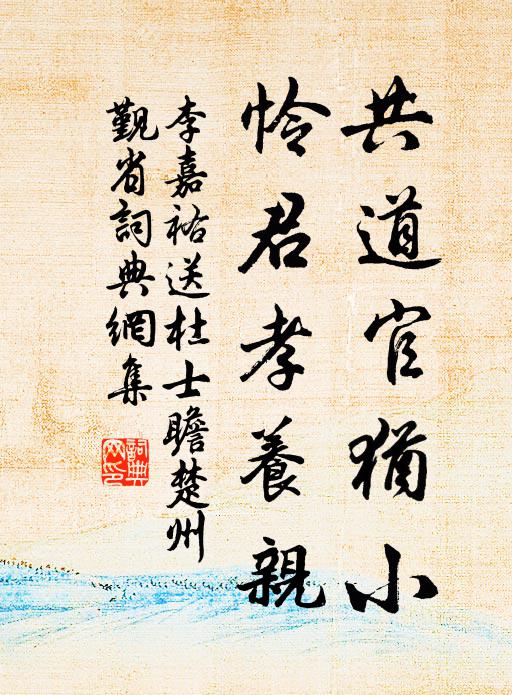 共道官猶小
怜君孝養親
李嘉祐送杜士瞻楚州
覲省詞典網集
詞典网印